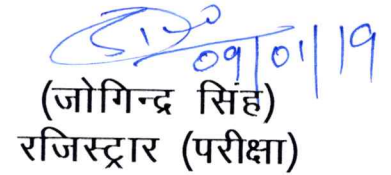 09/01/19
(जोगिन्द्र सिंह)
रजिस्ट्रार (परीक्षा)